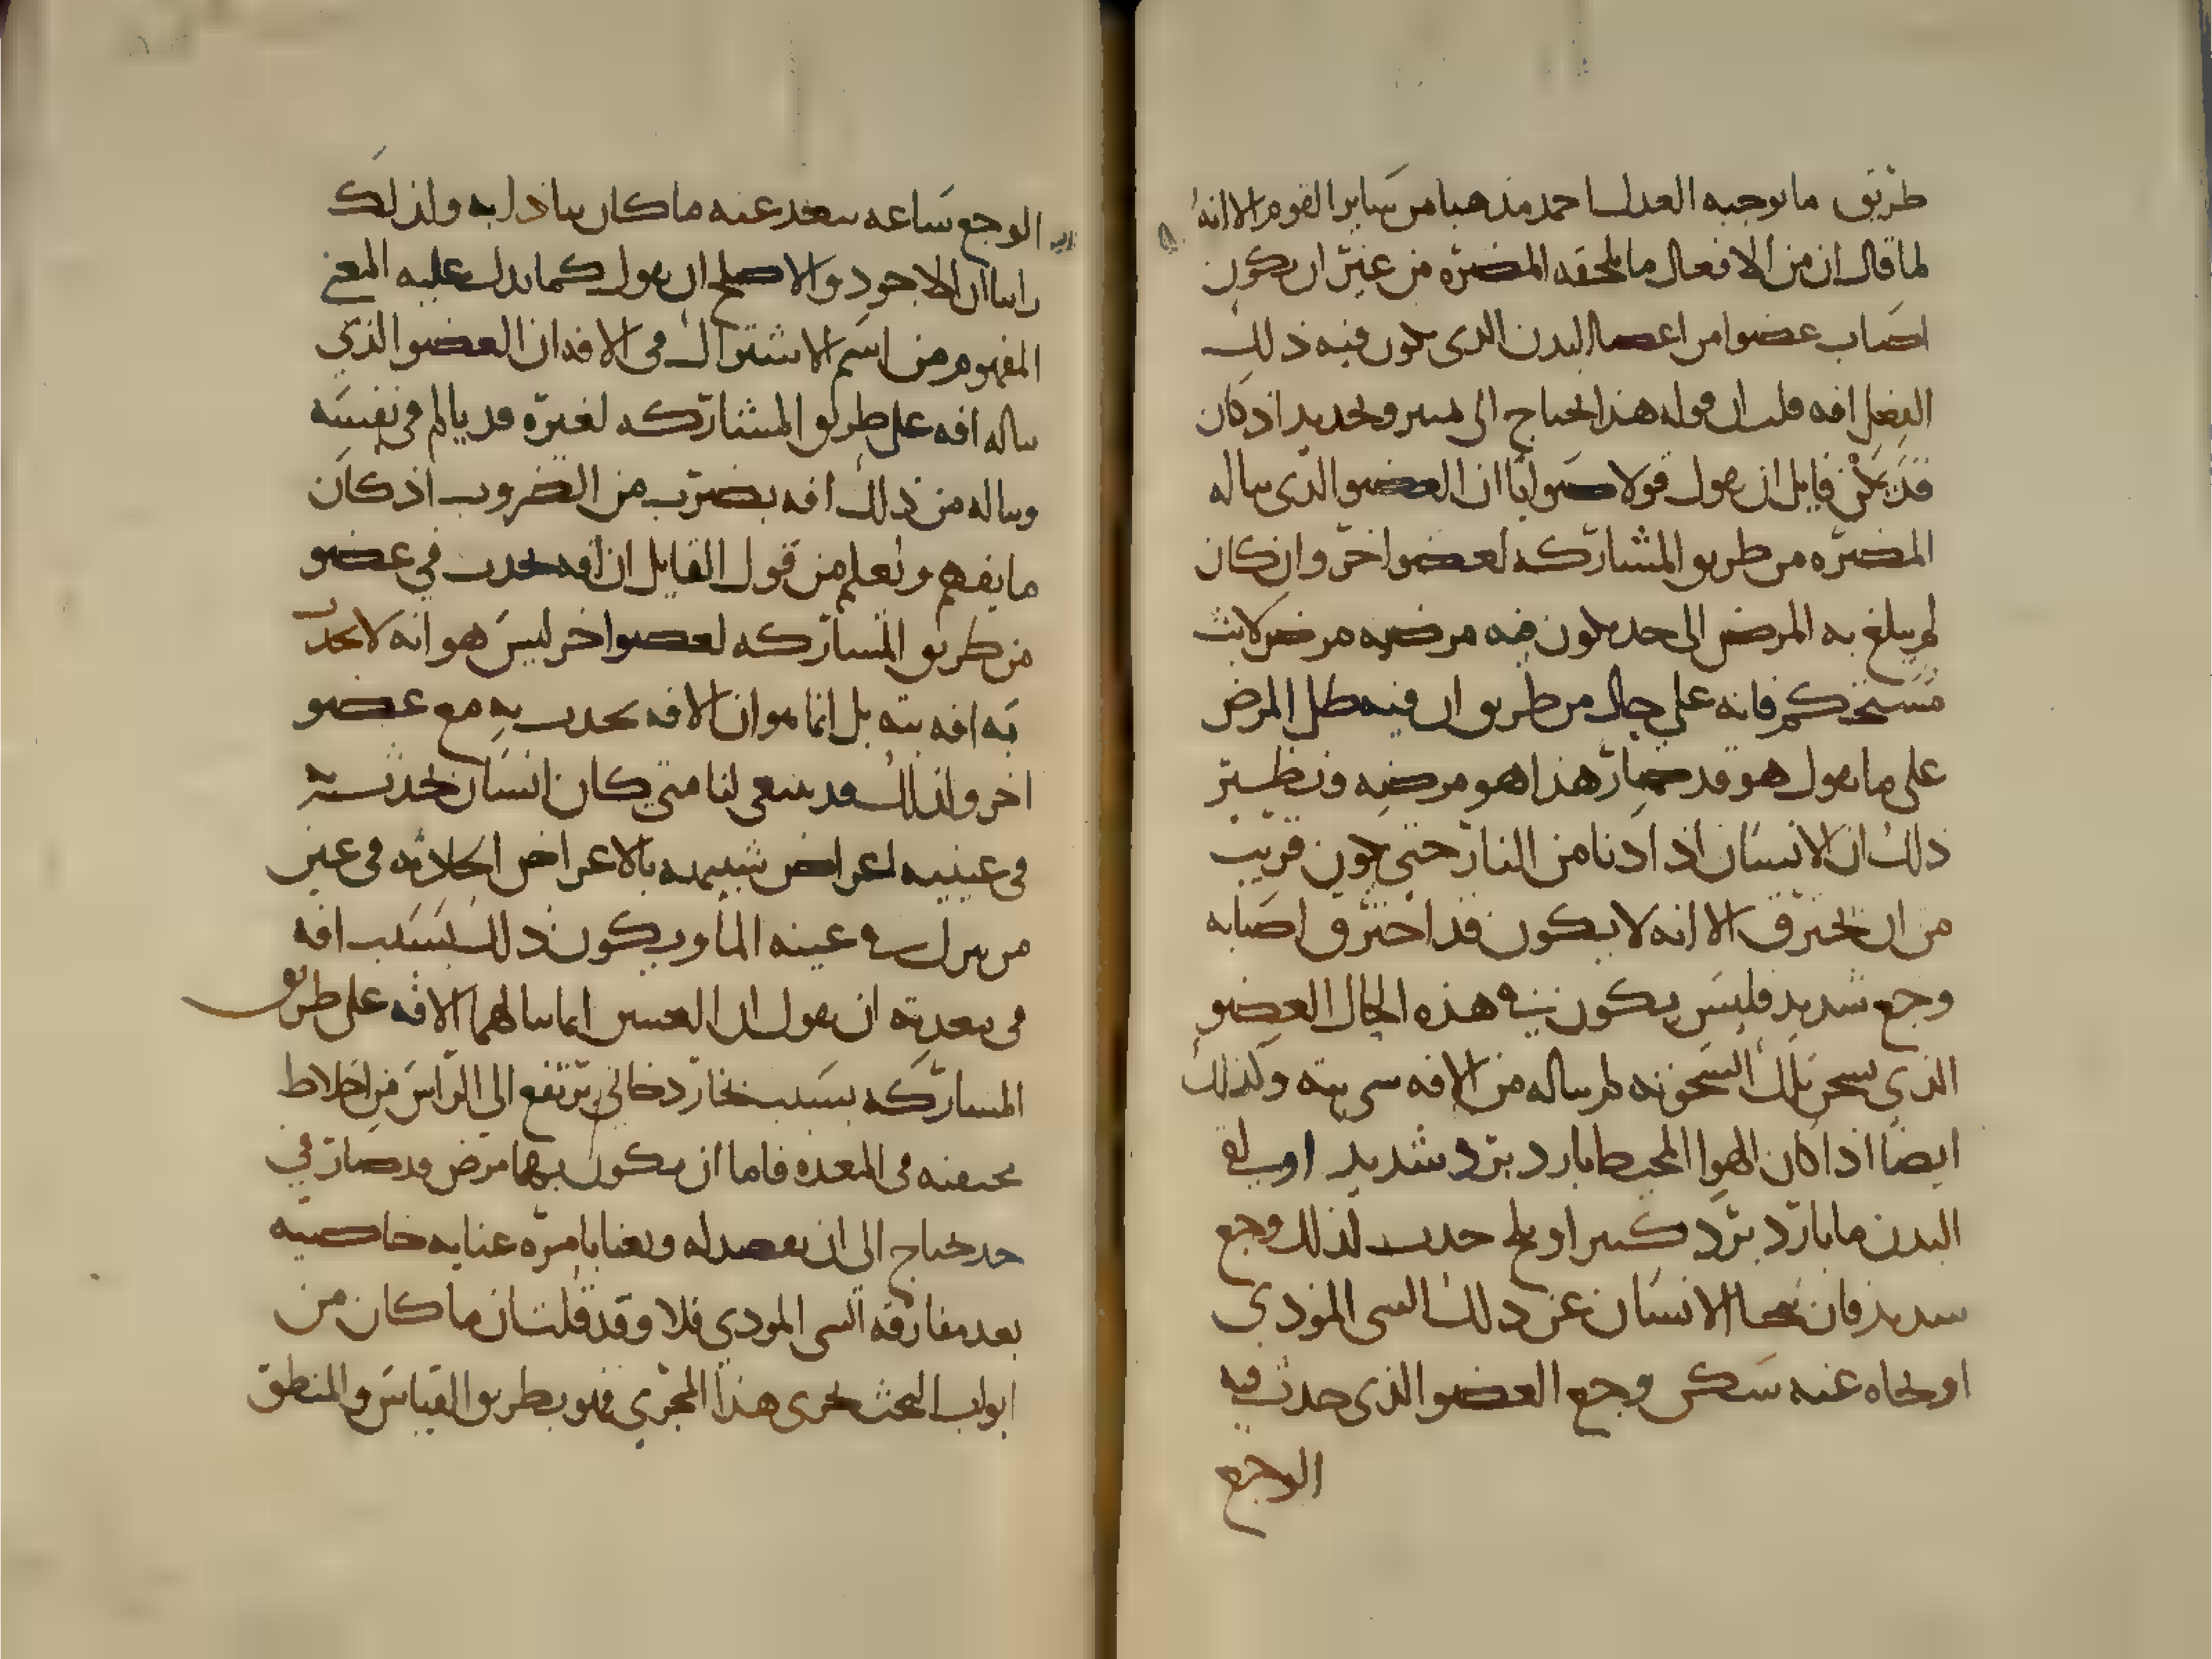 طريق ما توجبه العدل احمد مذهبا من ساير القوم الا انه
لما قال ان من الافعال ما يلحقه المضره من غير ان يكون
اصاب عضوا من اعضا البدن الذي يكون فيه ذلك
الفعل افه قلت ان قوله هذا يحتاج الى وتحديد اذ كان
قد يمكن قايل ان يقول قولا صوابا ان العضو الذي يناله
المضره من طريق المشاركه لعضو اخر وان كان
لم يبلغ به المرض الى حد يكون فيه مرضه مرض لابث
مستحكم فانه على حال من طريق ان فيه ظل المرض
على ما يقول هو قد صار هذا هو مرضه ونظير
ذلك ان الانسان اذا دنا من النار حتى يكون قريب
من ان يحترق الا انه لا يكون قد احترق اصابه
وجع شديد فليس يكون في هذه الحال العضو
الذي سخن تلك السخونه لم يناله من الافه شي بته وكذلك
ايضا اذا كان الهوا المحيط بارد برد شديد او لقي
البدن ما بارد برد كثير او ثلج حدث لذلك وجع
شديد فان نحا الانسان عن ذلك الشي الموذي
او نحاه عنه سكن وجع العضو الذي حدث فيه
الوجع
الوجع ساعه يبعد عنه ما كان يتاذا به ولذلك
راينا ان الاجود والاصلح ان يقول كما يدل عليه المعنى
المفهوم من اسم الاشتراك في الافه ان العضو الذي
يناله افه على طريق المشاركه لغيره قد يالم في نفسه
ويناله من ذلك افه بضرب من الضروب اذ كان
ما يفهم ويعلم من قول القايل ان افه تحدث في عضو
من طريق المشاركه لعضو اخر ليس هو انه لا يحدث
به افه بته بل انما هو ان الافه تحدث به مع عضو
اخر ولذلك قد ينبغي لنا متى كان انسان تحدث
في عينيه اعراض شبيهه بالاعراض الحادثه في عين
من ينزل في عينه الما ويكون ذلك بسبب افه
في معدته ان يقول ان العينين انما ينالهما الافه على طريق
المشاركه بسبب بخار دخاني يرتفع الى الراس من اخلاط
محتقنه في المعده فاما ان يكون بهما مرض قد صار في
حد يحتاج الى ان يقصد له ويعنا بامره عنايه خاصيه
بعد مفارقه الشي الموذي فلا وقد قلت ان ما كان من
ابواب البحث يجرى هذا المجرى فهو بطريق القياس والمنطق